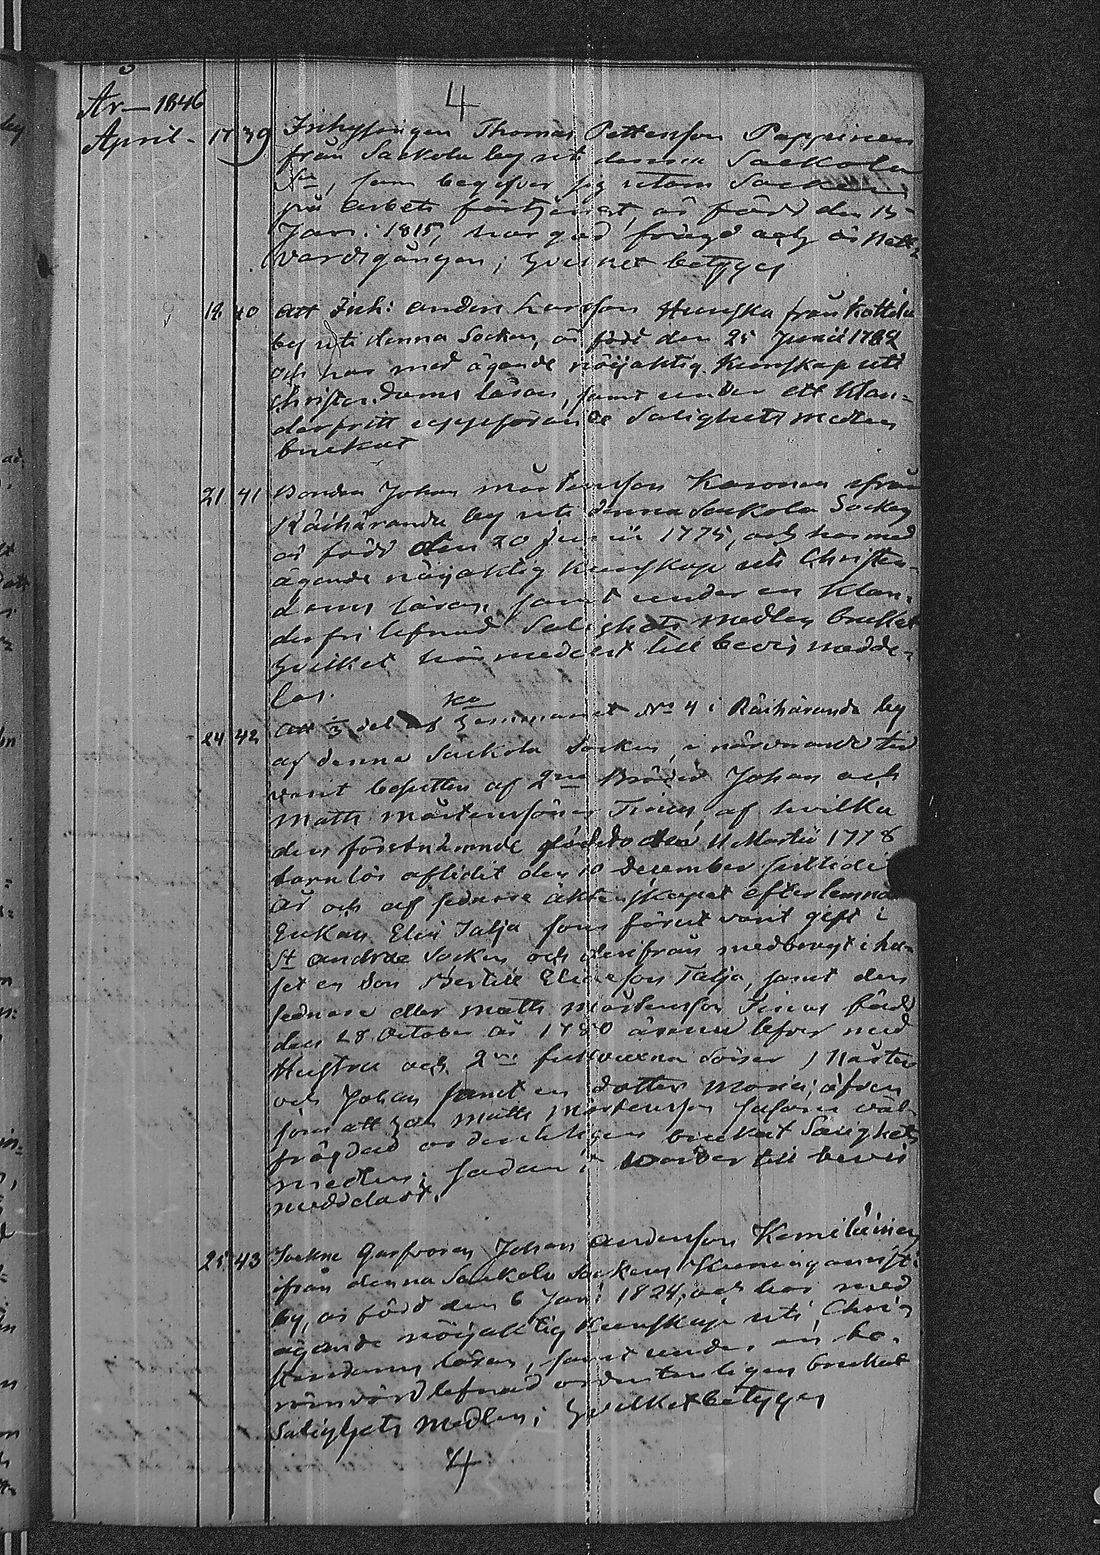 År 1846
4
April. 17 39 Inhysingen Thomas Pettersson Pappinen
från Sackola by uti denna Sackola
Sn, som begifver sig utom Socken
på arbets förtjenst, är född den 15
Jan: 1815, har god frägd och är Natt-
vardsgången; hvilket betyges
18 40 Att Inh: Anders Larsson Hunska från Kottila
by uti denna Socken, är född den 25 Junii 1782
och har med ägande nöjaktig Kunskap uti
Christendoms läran, samt under ett klan-
derfritt uppförande Salighets medlen
brukat
21 41 Bonden Johan Mårtensson Karonen ifrån
Räihäranda by uti denna Sackola Socken
är född den 20 Junii 1775, och har med
ägande nöjaktig Kunskap uti Christen-
doms läran, samt under en klan-
derfri lefnad Salighets medlen brukat
hvilket härmedelst till bevis medde-
las.
24 42 Att 1/3 del af hemmanet No 4 i Räihäranda by
af denna Sackola Socken, i närvarande tid
varit besutten af 2ne Bröder Johan och
Matts Mårtenssöner, af hvilka
den förstnämnde födde den 11 Martii 1778
barnlös aflidit den 10 December
år och af sednare äktenskapet efterlemnat
Enkan Elin Talja som förut varit gift i
St Andreæ Socken och derifrån medbragt i hu-
set en Son Bertill Eliaesson Talja, samt den
sednare eller Matts Mårtensson född
den 28 October år 1780 ännu lefver med
Hustru och 2ne fullvuxna Söner, Mårten
och Johan samt en dotter Maria; äfven
som att Matts Mårtensson såsom väl-
frägdad ordenteligen brukat Salighets
medlen; sådant warder till bevis
meddeladt.
25 43 Johan Andersson Kemiläinen
ifrån denna Sackola Sockens
by, är född den 6 Jan: 1824, och har med
ägande nöjaktig Kunskap uti Chri-
stendoms läran, samt under en be-
römvärd lefnad ordenteligen brukat
Salighets Medlen; hvilket betyges
4